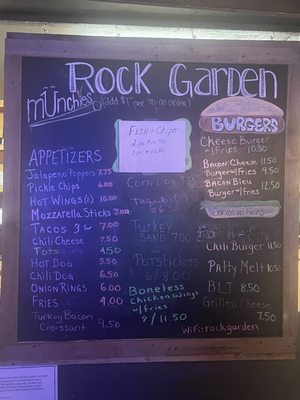 Rock Garden
münchies (add $1 per to-go order)
APPETIZERS
Jalapeno Poppers 7.75
Pickle Chips 6.00
Hot Wings (6) 10.00
Mozzarella Sticks 7.00
Tacos 3 7.00
Chili Cheese 7.50
Tots 4.50
Hot Dog 3.50
Chili Dog 6.50
Onion Rings 6.00
Fries 4.00
Turkey Bacon
Croissant 9.50
Fish & Chips
Corn Dog
Taquitos
Turkey
Sand 7.00
Potstickers
6/8.00
Boneless
Chicken Wings
w/fries
8/11.50
BURGERS
Cheese Burger
w/fries 10.50
Bacon Cheese 11.50
Burger w/fries 9.50
Bacon Bleu 12.50
Burger w/fries
Chili Burger 11.50
Patty Melt 10.50
BLT 8.50
Grilled Cheese
7.50
WiFi: rockgarden